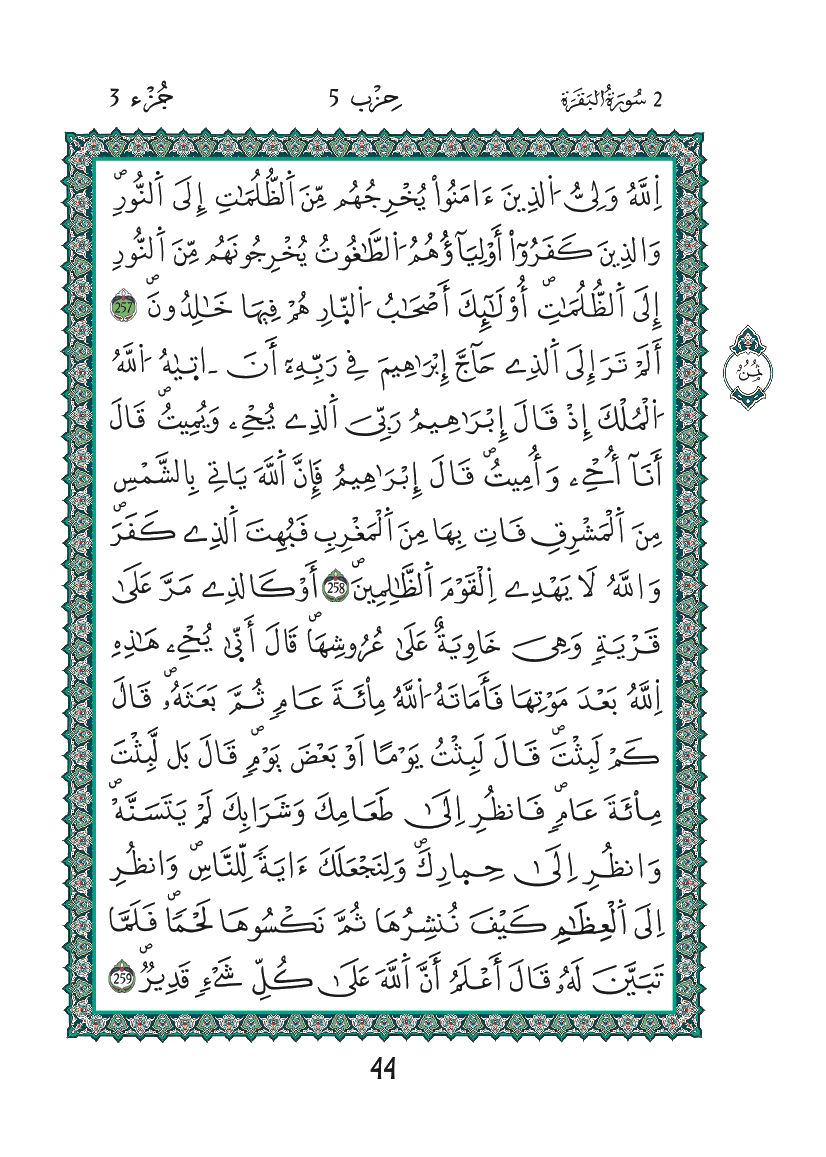 2 سُورَةُ الْبَقَرَةِ حِزْب 5 جُزْء 3
اِ۬للَّهُ وَلِيُّ اُ۬لذِينَ ءَامَنُواْ يُخْرِجُهُم مِّنَ اَ۬لظُّلُمَٰتِ إِلَى اَ۬لنُّورِۖ
وَالذِينَ كَفَرُوٓاْ أَوْلِيَآؤُهُمُ اُ۬لطَّٰغُوتُ يُخْرِجُونَهُم مِّنَ اَ۬لنُّورِ
إِلَى اَ۬لظُّلُمَٰتِۖ أُوْلَٰٓئِكَ أَصْحَٰبُ اُ۬لنّ۪ارِ هُمْ فِيهَا خَٰلِدُونَۖ 257
أَلَمْ تَرَ إِلَى اَ۬لذِے حَآجَّ إِبْرَٰهِيمَ فِے رَبِّهِۦٓ أَنَ اٰت۪يٰهُ اُ۬للَّهُ
اُ۬لْمُلْكَ إِذْ قَالَ إِبْرَٰهِيمُ رَبِّيَ اَ۬لذِے يُحْيِۦ وَيُمِيتُۖ قَالَ
أَنَآ أُحْيِۦ وَأُمِيتُۖ قَالَ إِبْرَٰهِيمُ فَإِنَّ اَ۬للَّهَ يَاتِے بِالشَّمْسِ
مِنَ اَ۬لْمَشْرِقِ فَاتِ بِهَا مِنَ اَ۬لْمَغْرِبِ فَبُهِتَ اَ۬لذِے كَفَرَۖ
وَاللَّهُ لَا يَهْدِے اِ۬لْقَوْمَ اَ۬لظَّٰلِمِينَۖ 258 أَوْ كَالذِے مَرَّ عَلَىٰ
قَرْيَةٖ وَهِيَ خَاوِيَةٌ عَلَىٰ عُرُوشِهَاۖ قَالَ أَنّ۪ىٰ يُحْيِۦ هَٰذِهِ
اِ۬للَّهُ بَعْدَ مَوْتِهَا فَأَمَاتَهُ اُ۬للَّهُ مِاْئَةَ عَامٖ ثُمَّ بَعَثَهُۥۖ قَالَ
كَمْ لَبِثْتَۖ قَالَ لَبِثْتُ يَوْماً اَوْ بَعْضَ يَوْمٖۖ قَالَ بَل لَّبِثْتَ
مِاْئَةَ عَامٖۖ فَانظُرِ اِلَىٰ طَعَامِكَ وَشَرَابِكَ لَمْ يَتَسَنَّهْۖ
وَانظُرِ اِلَىٰ حِم۪ارِكَۖ وَلِنَجْعَلَكَ ءَايَةٗ لِّلنَّاسِۖ وَانظُرِ
اِلَى اَ۬لْعِظَٰمِ كَيْفَ نُنشِرُهَا ثُمَّ نَكْسُوهَا لَحْماٗۖ فَلَمَّا
تَبَيَّنَ لَهُۥ قَالَ أَعْلَمُ أَنَّ اَ۬للَّهَ عَلَىٰ كُلِّ شَےْءٖ قَدِيرٌۖ 259
ثُمُن
44